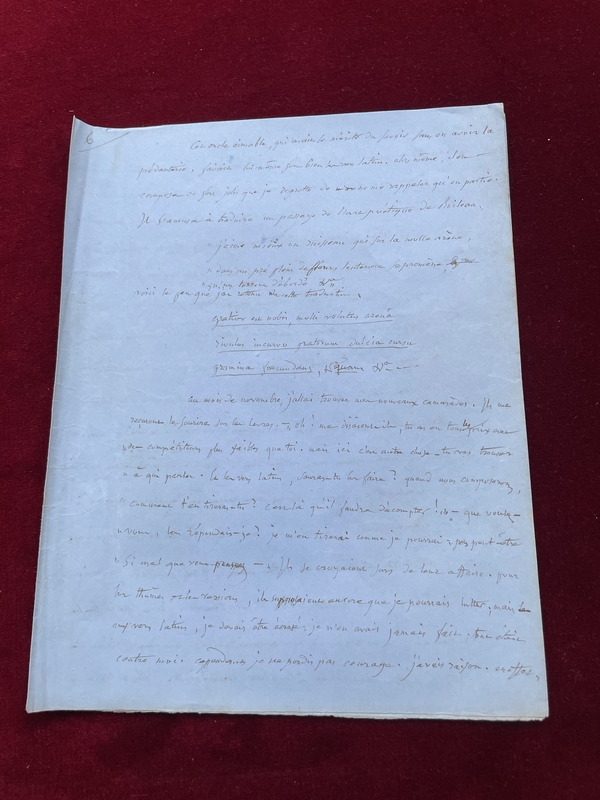 6
Cet oncle aimable, qui avait le mérite du savoir sans en avoir la
pédanterie, faisait lui même fort bien les vers latins. alors même il en
composa de fort jolis que je regrette de ne me rappeler qu'en partie.
Il s'amusa à traduire un passage de l'art poétique de Boileau.
"j'aime mieux un ruisseau qui sur la molle arène,
"dans un pré plein de fleurs lentement se promène
"qu'un torrent débordé &a
voici le peu que j'ai retenu de cette traduction.
gratior est nobis, molli volutus arenâ
rivulus incurvo pratorum dulcia cursu
gramina foecundans, &a
au mois de novembre, j'allai trouver mes nouveaux camarades. Ils me
reçurent le sourire sur les lèvres. "oh! me disaient-ils, tu as eu tous les prix avec
"des compétiteurs plus faibles que toi. mais ici c'est autre chose. tu vas trouver
"à qui parler. les vers latins, sauras-tu les faire? quand nous composerons,
"comment t'en tireras-tu? c'est là qu'il faudra décompter! "- que voulez-
"vous, leur répondais-je? je m'en tirerai comme je pourrai, pas peut-être
"si mal que vous pensez -". Ils se croyaient sûrs de leur affaire. pour
les thèmes et les versions, ils supposaient encore que je pourrais lutter, mais
aux vers latins, je devais être écrasé; je n'en avais jamais fait. tout était
contre moi. cependant je ne perdis pas courage. j'avais raison. en effet,